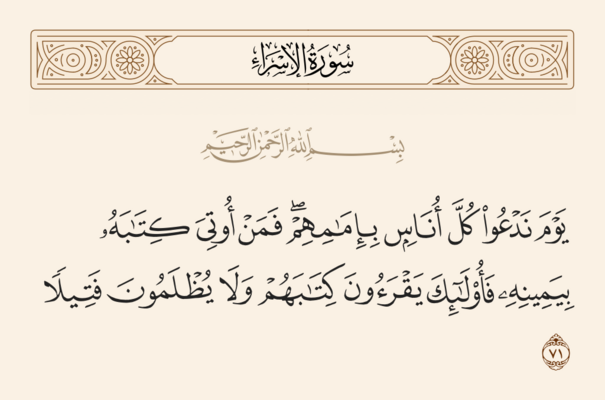 سُورَةُ الإِسْرَاءِ
بِسْمِ ٱللَّهِ ٱلرَّحْمَٰنِ ٱلرَّحِيمِ
يَوْمَ نَدْعُوا۟ كُلَّ أُنَاسٍۭ بِإِمَـٰمِهِمْ ۖ فَمَنْ أُوتِىَ كِتَـٰبَهُۥ
بِيَمِينِهِۦ فَأُو۟لَـٰٓئِكَ يَقْرَءُونَ كِتَـٰبَهُمْ وَلَا يُظْلَمُونَ فَتِيلًا
٧١